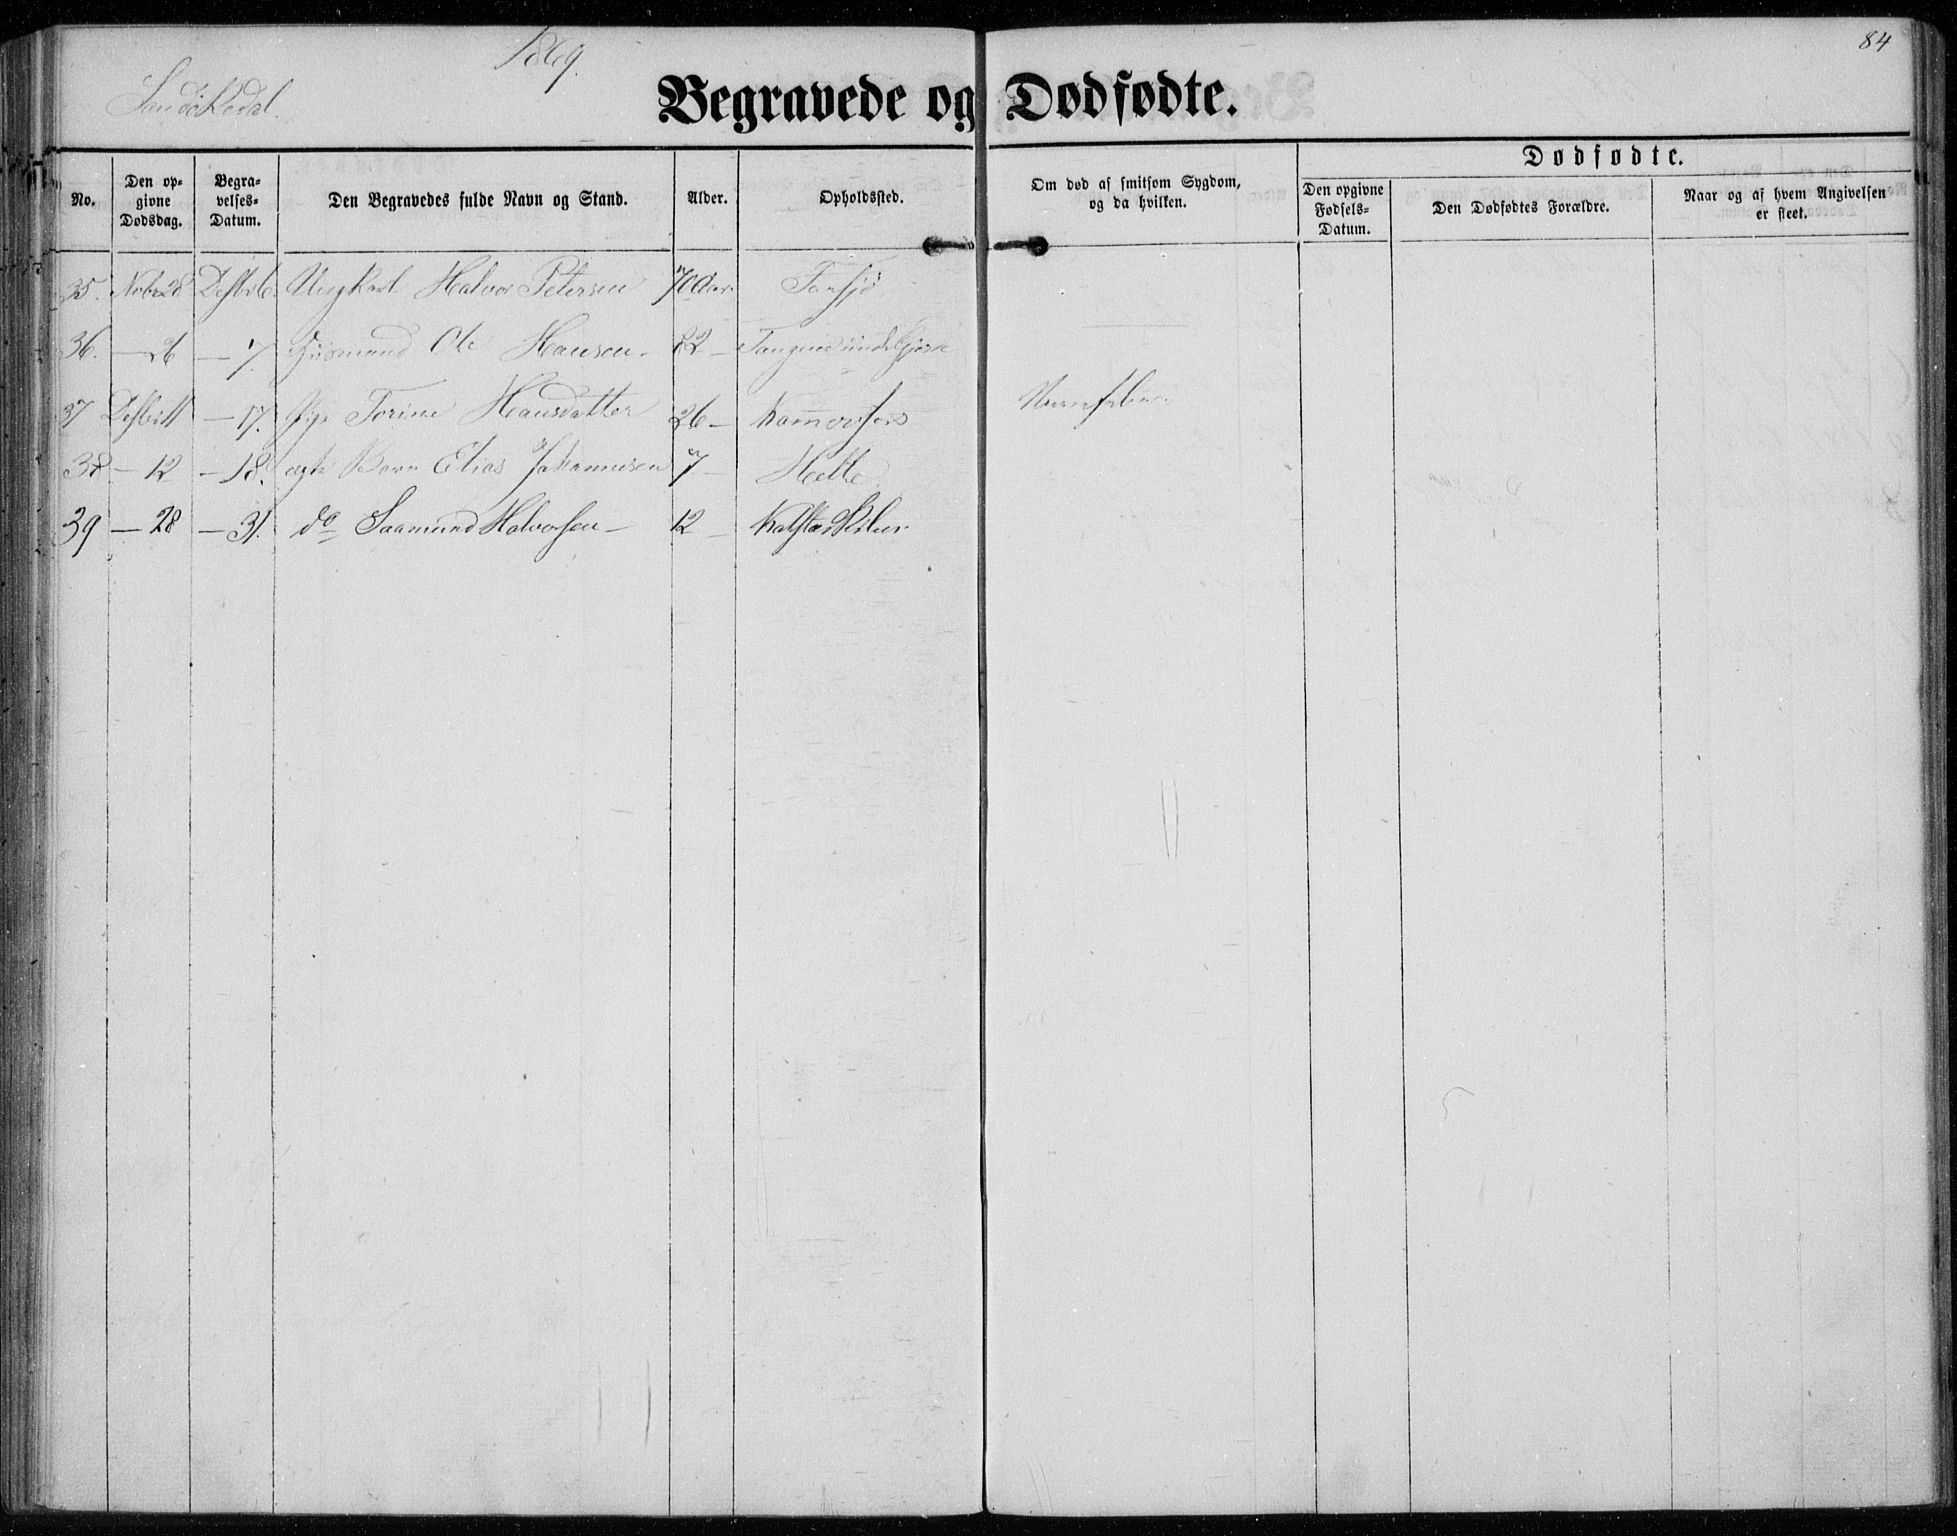 1869.
84
Sandøkedal.
Begravede og Dødfødte.
No.
Den op-
givne
Dødsdag.
Begra-
velses-
Datum.
Den Begravedes fulde Navn og Stand.
Alder.
Opholdssted.
Om død af smitsom Sygdom,
og da hvilken.
Dødfødte.
Den opgivne
Fødsels-
Datum.
Den Dødfødtes Forældre.
Naar og af hvem Angivelsen
er skeet.
35. Nvbr 28 Desbr 6. Ungkarl Halvor Petersen 70 Aar. Farsjø
36. — 26 — 7. Huusmand Ole Hansen. 82 — Tangene under
37 Desbr 11 — 17. Pige Torine Hansdatter 26 —
38 — 12 — 18. ægte Barn Elias Johannesen 7 — Helle
39 — 28 — 31. do Saamund Halvorsen — 12 —